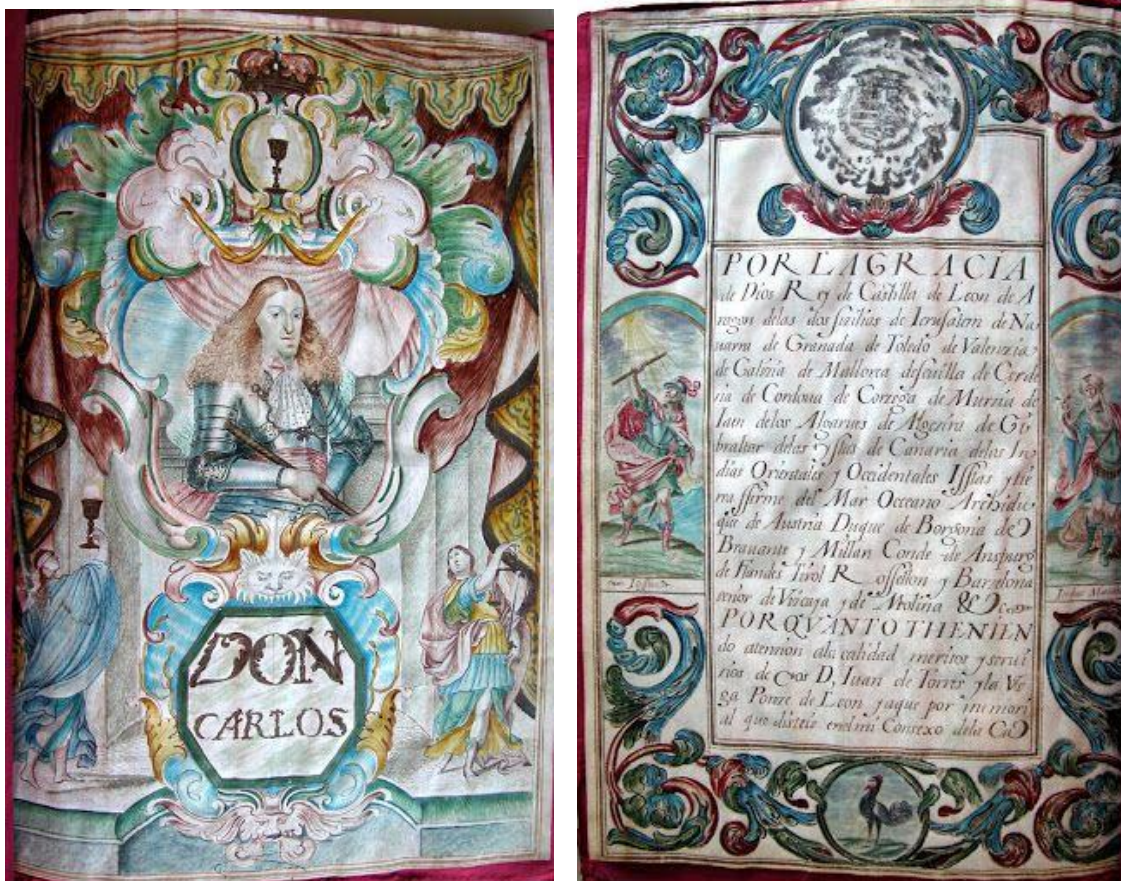 DON
CARLOS
POR LA GRACIA
de Dios Rey de Castilla de Leon de A
ragon delas dos siçilias de Ierusalem de Na
uarra de Granada de Toledo de Valenzia
de Galiçia de Mallorca deseuilla de Cerde
na de Cordoua de Corzega de Murzia de
Iaen delos Algarues de Algezira de Gi
braltar delas Yslas de Canaria delas In
dias Orientales y Occidentales Isslas y tie
rra ffirme del Mar Occeano Archidu
que de Austria Duque de Borgoña de
Brauante y Millan Conde de Auspurg
de Flandes Tirol Rossellon y Barzelona
señor de Vizcaya y de Molina &c
POR QVANTO THENIEN
do atencion ala calidad meritos y serui
zios de vos D, Iuan de Torres y la Ve
ga Ponze de Leon y aque por memori
al que disteis en el mi Consexo dela Ca
Iosue
Iudas